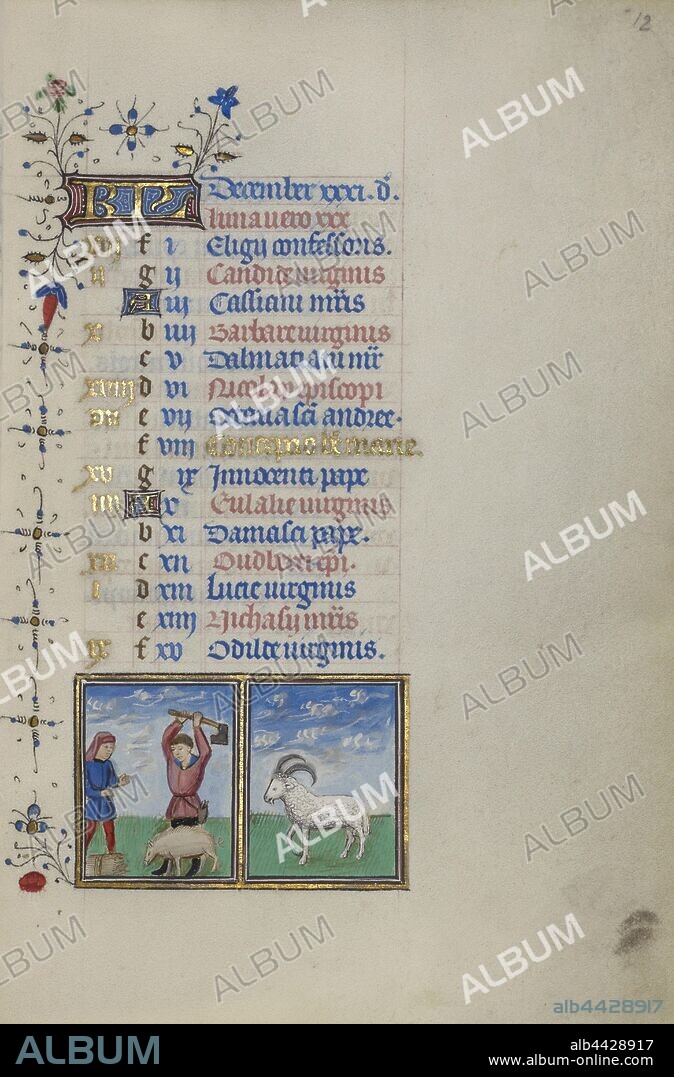 12
KL December xxxi. d.
luna vero xxx
f i Eligii confessoris.
ii g ij Candide virginis
A iij Cassiani mris
x b iiij Barbare virginis
c v Dalmati
xviij d vi Nicolai episcopi
vij e vij Octava sci andree.
f viij Conceptio be marie.
xv g ix Innocenti pape
iiij A x Eulalie virginis
b xi Damasi pape.
xij c xii epi.
i d xiii Lucie virginis
e xiiij Nichasij mris
ix f xv Odilie virginis.
ALBUM
alb4428917
ALBUM
alb4428917
www.album-online.com